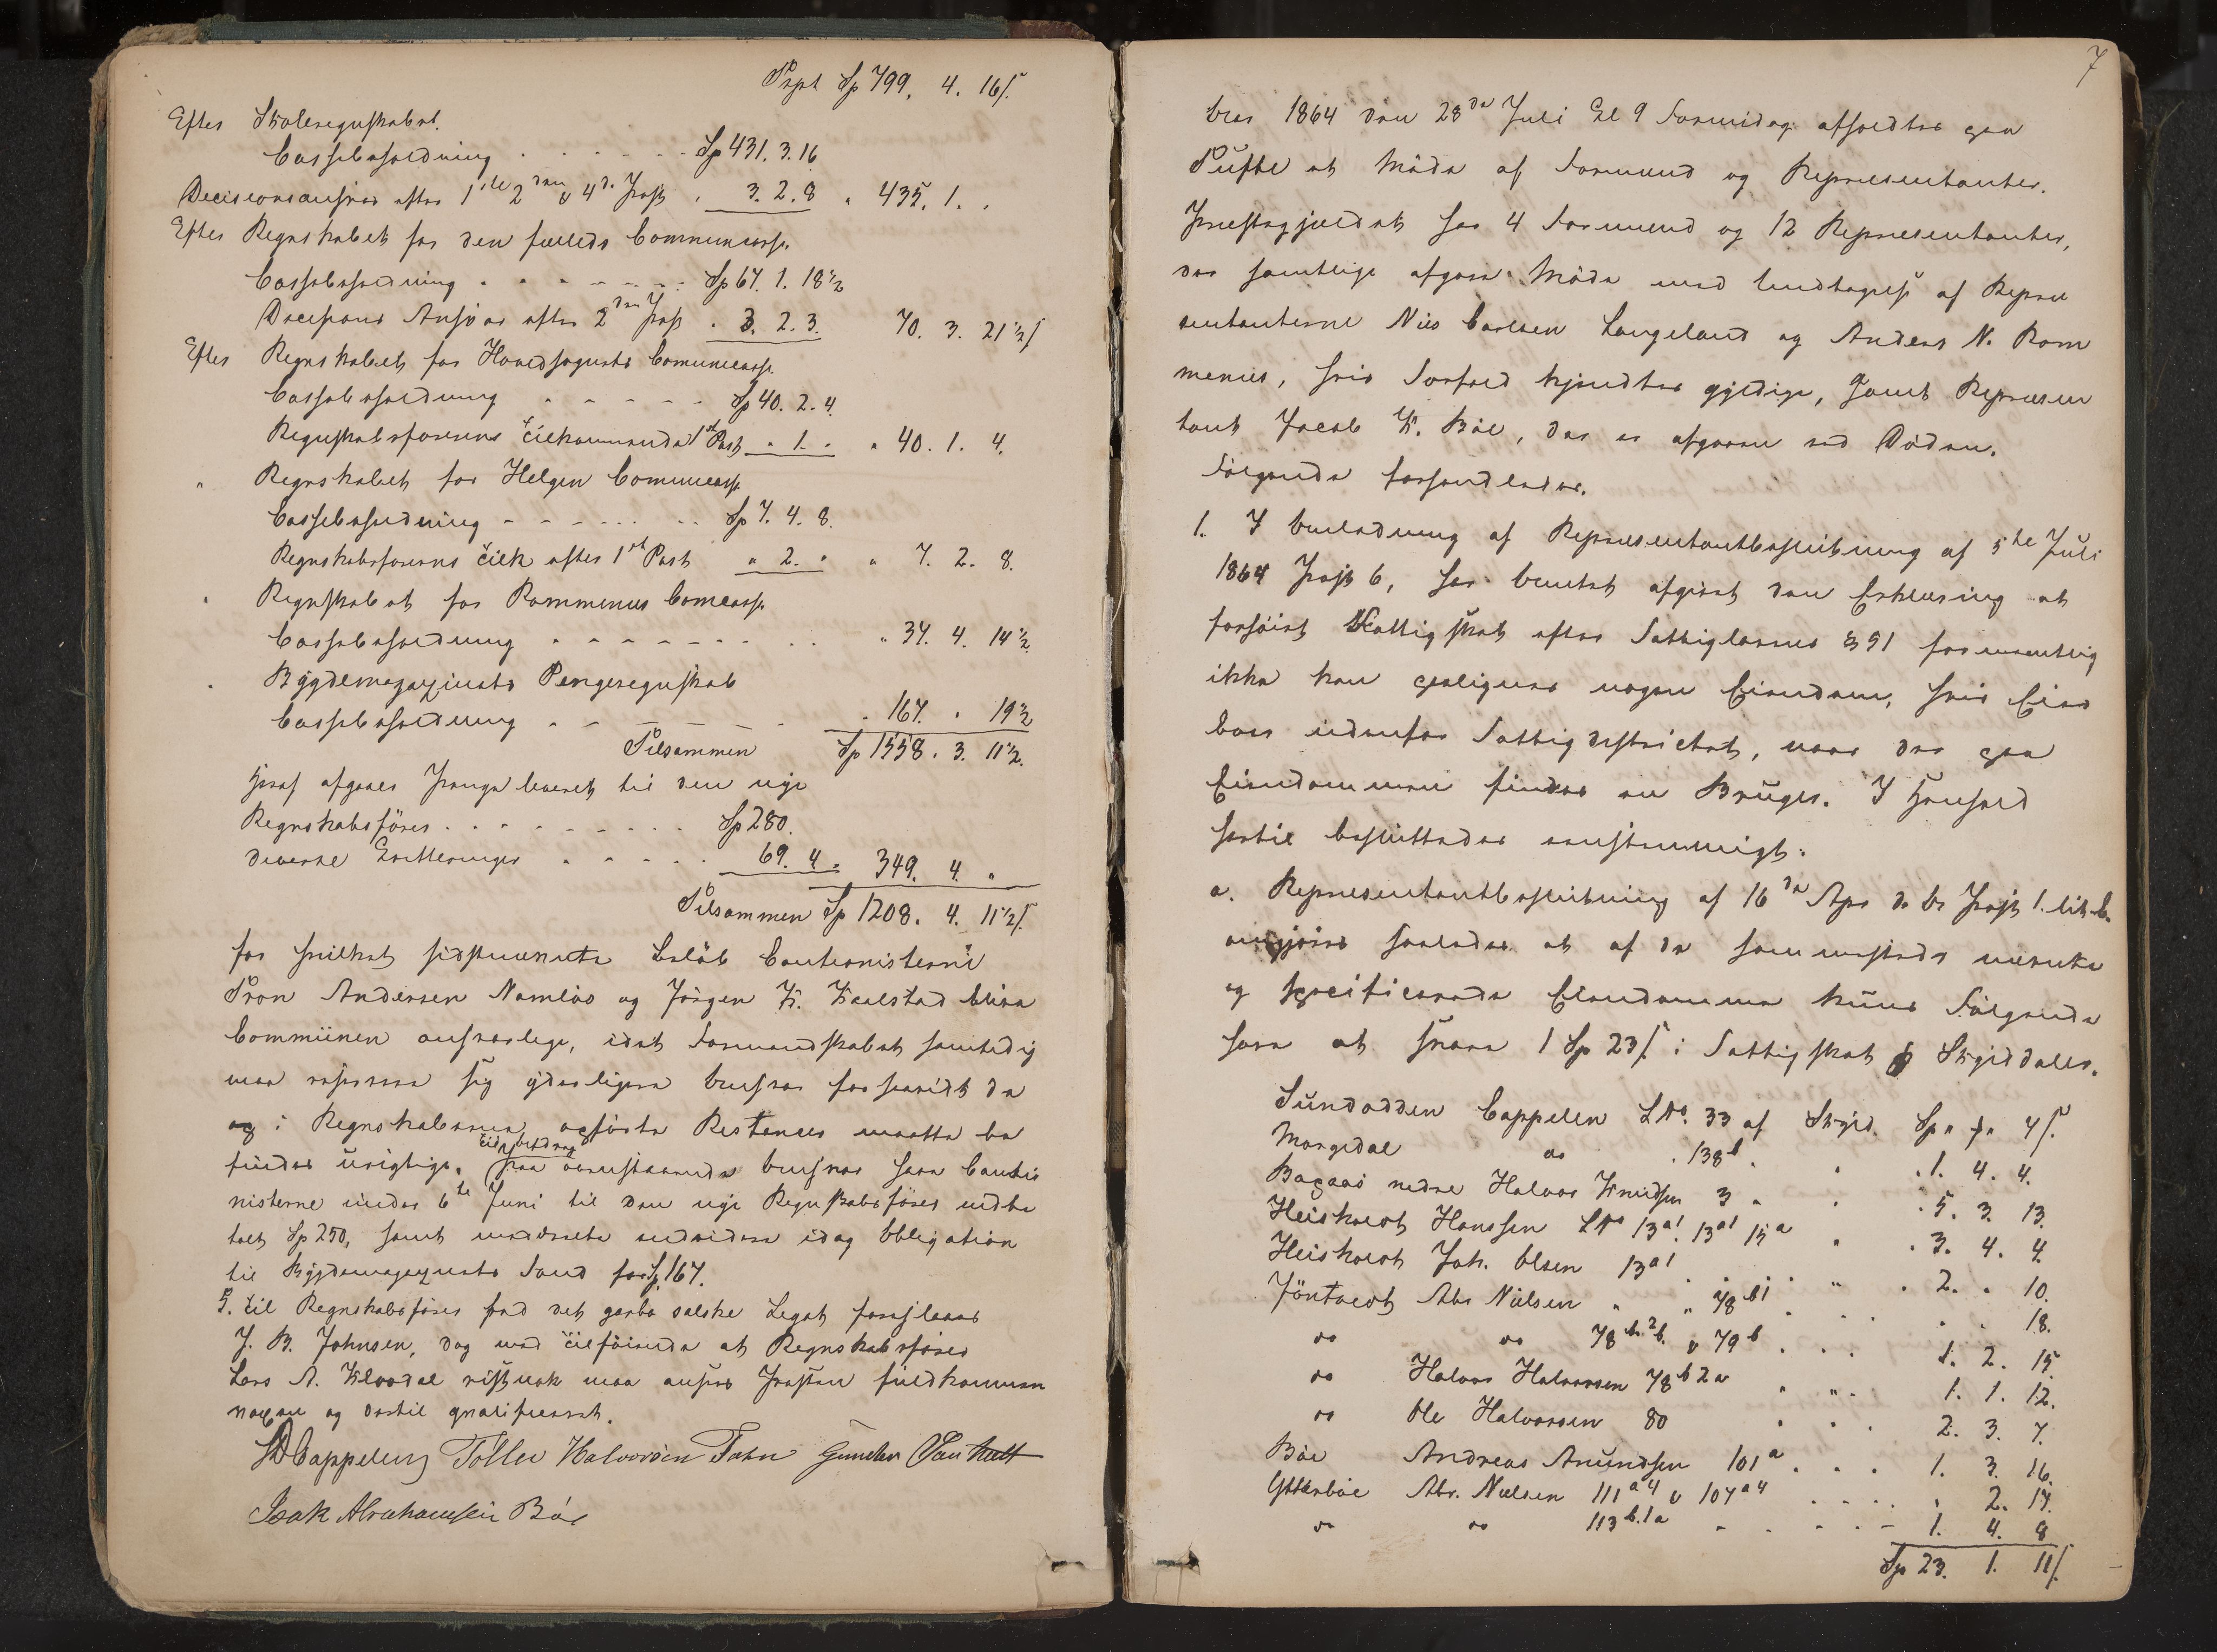 Trpt Sp 799. 4. 16 s.
Efter Skoleregnskabet.
Cassebeholdning - - - - - - Sp 431. 3. 16
Decisionsansvar efter 1ste 2den & 4de Post . 3. 2. 8 " 435. 1. "
Efter Regnskabet for den fælleds Communecasse
Cassebeholdning - - - - - - Sp 67. 1. 18½
Decisions Ansvar efter 2den Post . 3. 2. 3. 70. 3. 21½ s
Efter Regnskabet for Hovedsognets Comunecasse
Cassebeholdning - - - - - - Sp 40. 2. 4.
Regnskabsførerens Tilkommende 1ste Post " 1. " " 40. 1. 4.
" Regnskabet for Helgen Communecasse
Cassebeholdning - - - - - - Sp 7. 4. 8.
Regnskabsførerens Tilk efter 1ste Post " 2. " " 7. 2. 8.
" Regnskabet for Rommenæs Comcasse
Cassebeholdning - - - - - - " 37. 4. 14½
" Bygdemagazinets Pengeregnskab
Cassebeholdning - - - - - " 167. " 19½
Tilsammen Sp 1558. 3. 11½.
Heraf afgaaer Penge leveret til den nye
Regnskabsfører - - - - - - Sp 280.
diverse Qvitteringer - - - - - 69. 4 " 349. 4. "
Tilsammen Sp 1208. 4. 11½ s.
for hvilket sidstnævnte Beløb Cautionisterne
Tron Andersen Namløs og Jörgen K. Kaalstad blive
Communen ansvarlige, idet Formandskabet samtidig
maa reservere sig yderligere Ansvar forsaavidt de
og i Regnskaberne opførte Restancer maatte be
findes urigtige. Paa ovenstaaende Ansvar til Afdrag have Cautio
nisterne under 6te Juni til den nye Regnskabsfører indbe
talt Sp 250, samt medsendte endvidere idag Obligation
til Bygdemagazinets Fond for Sp 167.
5. Til Regnskabsfører ved det grevbe salske Legat foreslaaes
J. B. Johnsen, dog med Tilføiende at Regnskabsfører
Lars A. Kleodal vistnok maa ansees Posten fuldkommen
voxen og dertil qvalificeret.
D Cappelen Töller Halvorsen Fahn Gunder
Isak Abrahamsen Bøe
7
Aar 1864 den 28de Juli Kl 9 Formidag afholdtes paa
Tufte et Møde af Formænd og Repræsentanter.
Præstegjældet har 4 Formænd og 12 Repræsentanter,
der samtlige afgave Møde med Undtagelse af Repræ
sentanterne Nils Carlsen Langeland og Anders N. Rom
menæs, hvis Forfald kjendtes gyldige, samt Repræsen
tant Jacob K. Bøe, der er afgaaen ved Døden.
Følgende forhandledes.
1. I Anledning af Repræsentantbeslutning af 5te Juli
1864 Post 6, har Amtet afgivet den Erklæring at
forhøiet Fattigskat efter Fattiglovens § 51 formentlig
ikke kan paalignes nogen Eiendom, hvis Eier
boer udenfor Fattigdistrictet, naar der paa
Eiendommen findes en Bruger. I Henhold
hertil besluttedes eenstemmigt:
a. Repræsentantbeslutning af 16de Apr d. A. Post 1. lit b.
omgjøres saaledes at af de sammesteds nævnte
og specificerede Eiendomme kuns Følgende
have at svare 1 Sp 23 s. i Fattigskat pr Skylddaler.
Sundodden Cappelen LNo. 33 af Skyld. Sp " " 4 s.
Morgedal do . 138b . " . 1. 4. 4.
Bagaas nedre Halvor Knudsen 3 " " . 5. 3. 13.
Heisholt Hanssen LNo 13a1. 13a1 15a " . 3. 4. 4.
Heisholt Joh. Olsen 13a1 . . . . " . 2. " 10.
Jöntvedt Abr Nielsen " " 78b1 . . . . . 18.
do do 78b.2b. & 79b . . . 1. 2. 15.
do Halvor Halvorsen 78b2a . " . 1. 1. 12.
do Ole Halvorsen 80 . . . 2. 3. 7.
Bøe Andreas Amundsen 101a . . . 1. 3. 16.
Ytterbøe Abr. Nielsen 111a4 & 107a4 . . . . " 2. 17.
do do 113b.1a - - - - - 1. 4. 8
Sp 23. 1. 11 s.